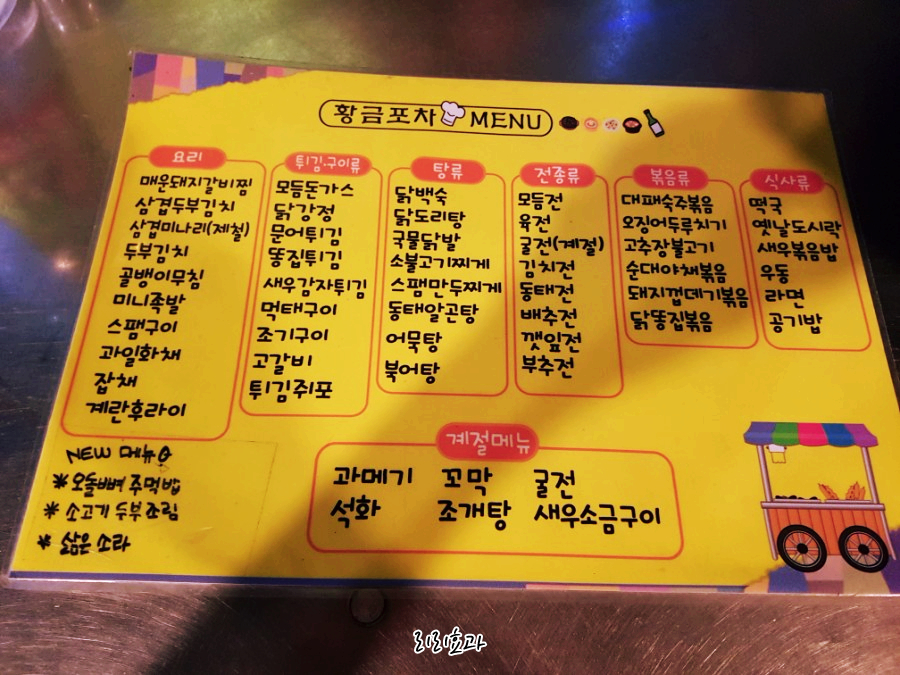 황금포차 MENU
요리
매운돼지갈비찜
삼겹두부김치
삼겹미나리(제철)
두부김치
골뱅이무침
미니족발
스팸구이
과일화채
잡채
계란후라이
튀김.구이류
모듬돈가스
닭강정
문어튀김
똥집튀김
새우감자튀김
먹태구이
조기구이
고갈비
튀김쥐포
탕류
닭백숙
닭도리탕
국물닭발
소불고기찌게
스팸만두찌게
동태알곤탕
어묵탕
북어탕
전종류
모듬전
육전
굴전(계절)
김치전
동태전
배추전
깻잎전
부추전
볶음류
대패숙주볶음
오징어두루치기
고추장불고기
순대야채볶음
돼지껍데기볶음
닭똥집볶음
식사류
떡국
옛날도시락
새우볶음밥
우동
라면
공기밥
NEW 메뉴
* 오돌뼈 주먹밥
* 소고기 두부조림
* 삶은 소라
계절메뉴
과메기 꼬막 굴전
석화 조개탕 새우소금구이